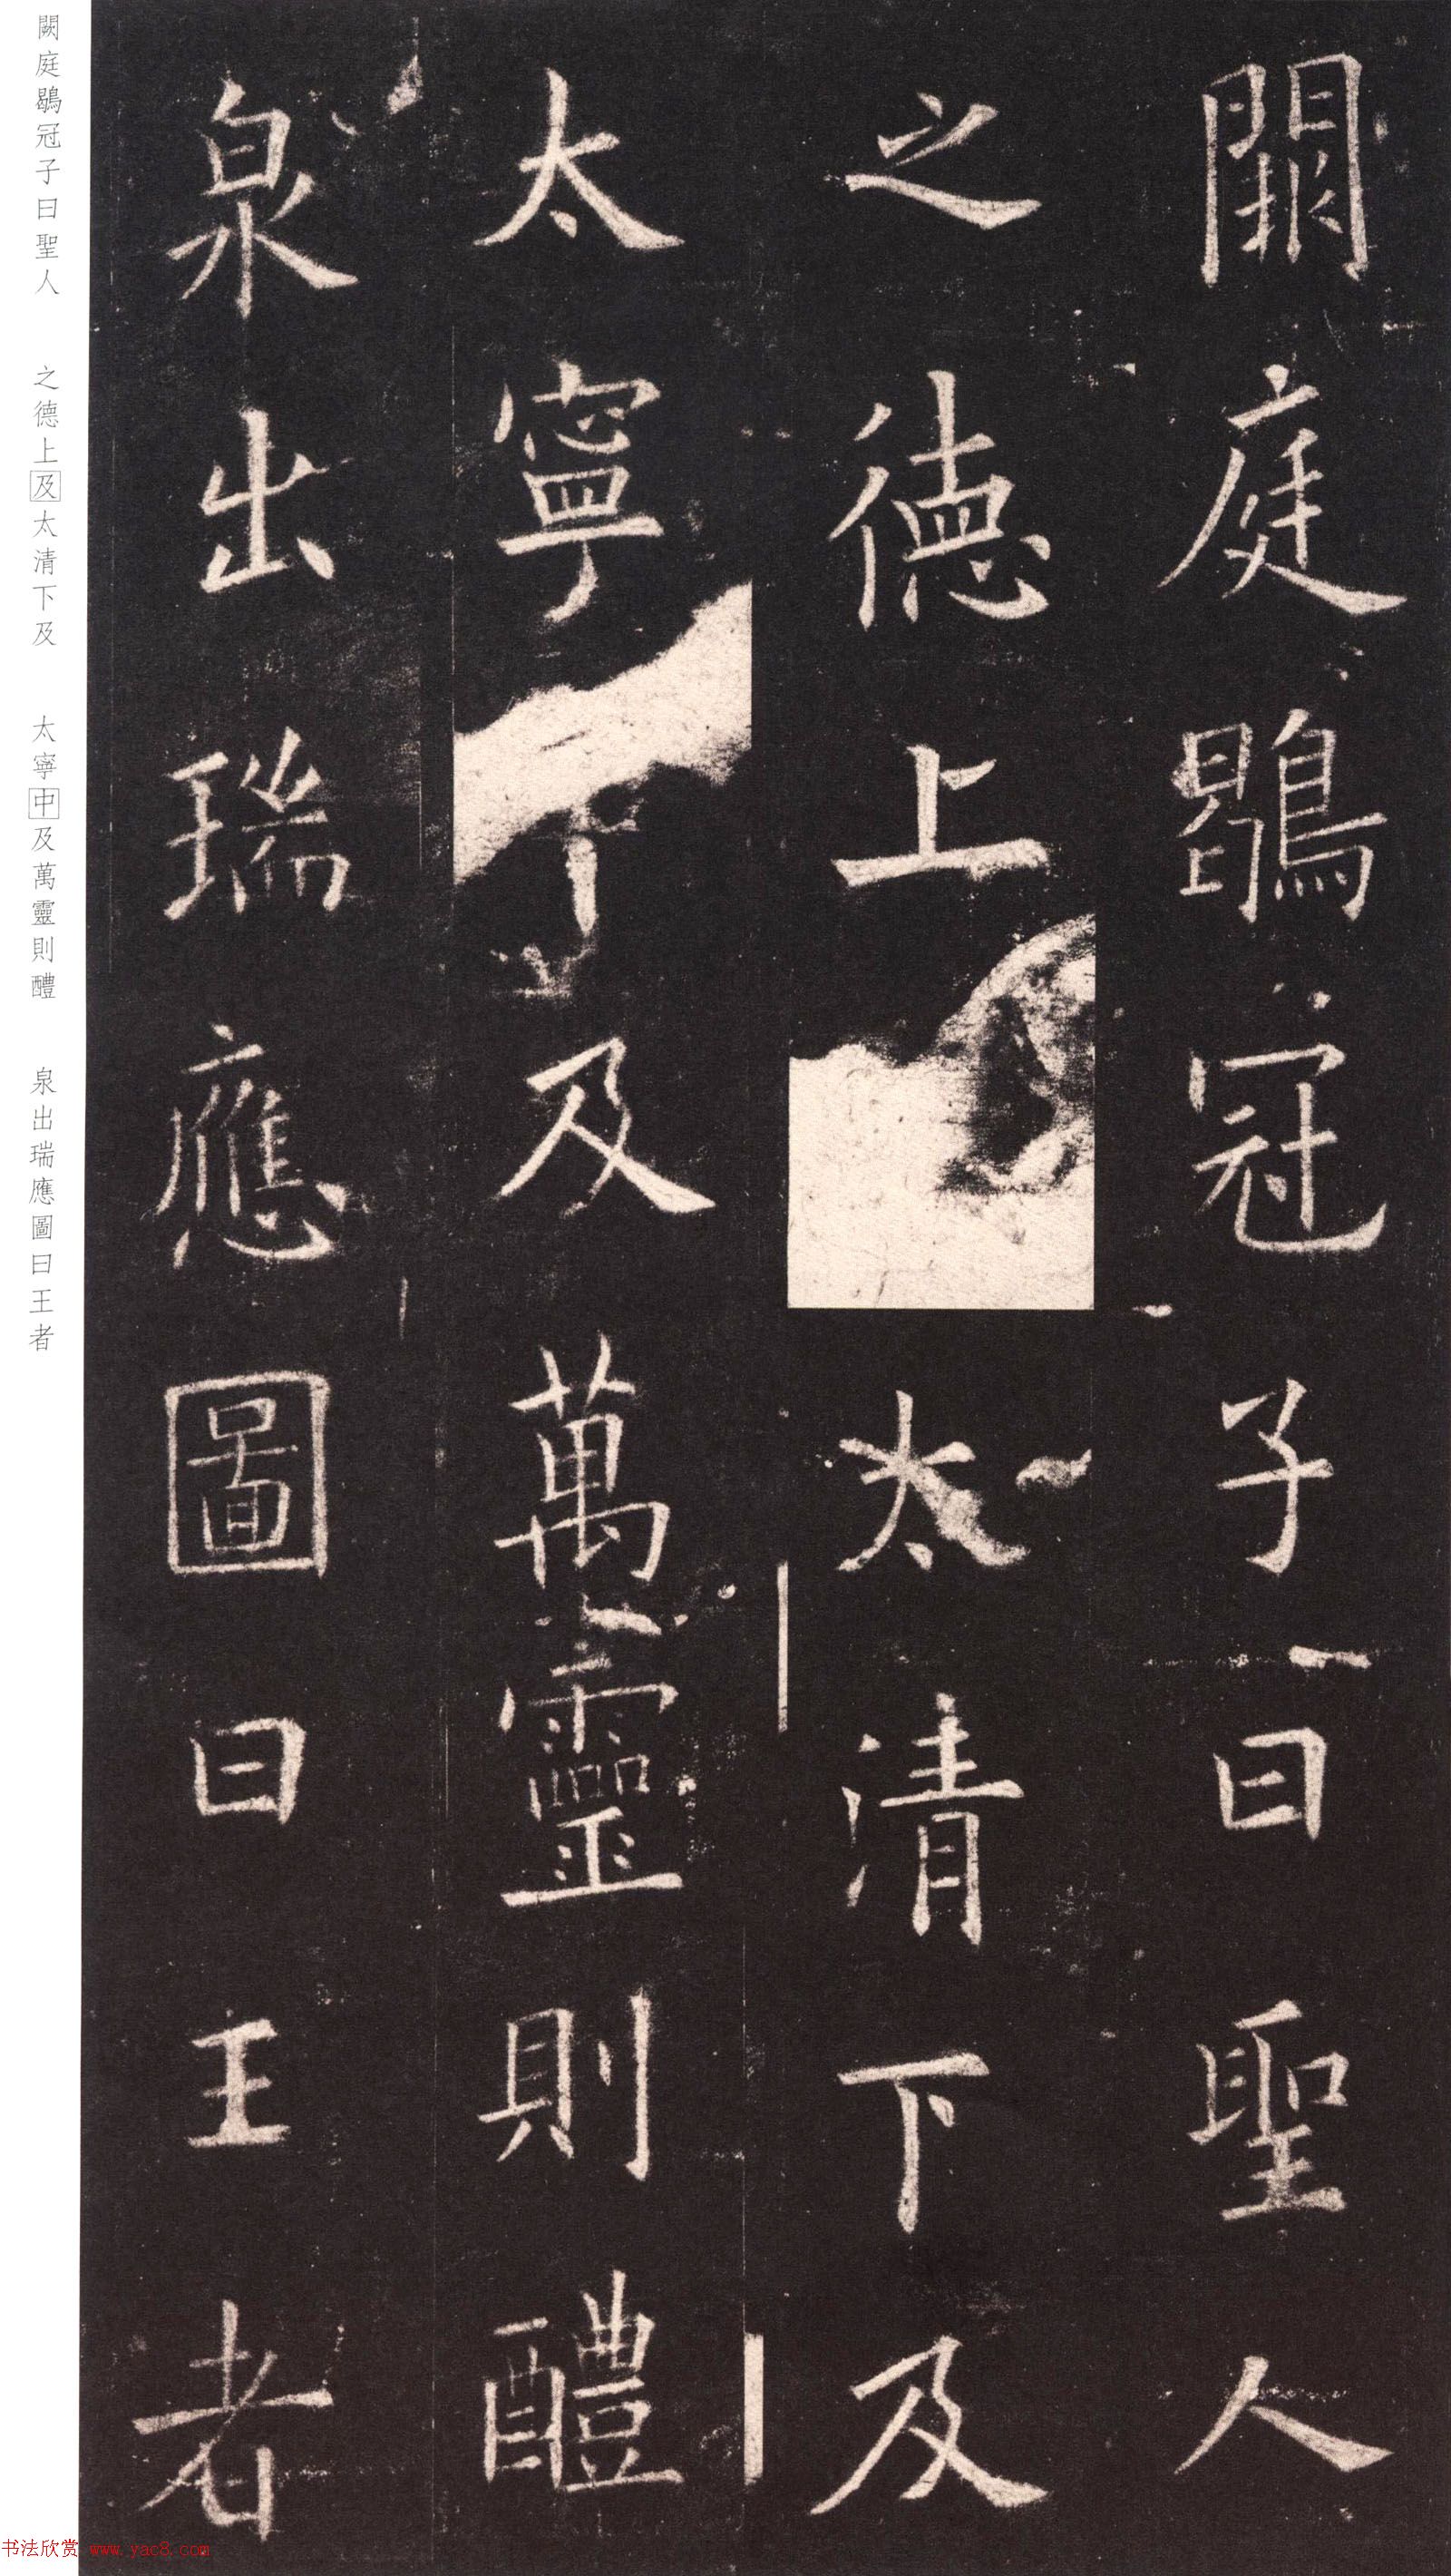 闕庭鶡冠子曰聖人
之德上太清下及
太寧及萬靈則醴
泉出瑞應圖曰王者
闕庭鶡冠子曰聖人　之德上及太清下及　太寧中及萬靈則醴　泉出瑞應圖曰王者
书法欣赏 www.yac8.com